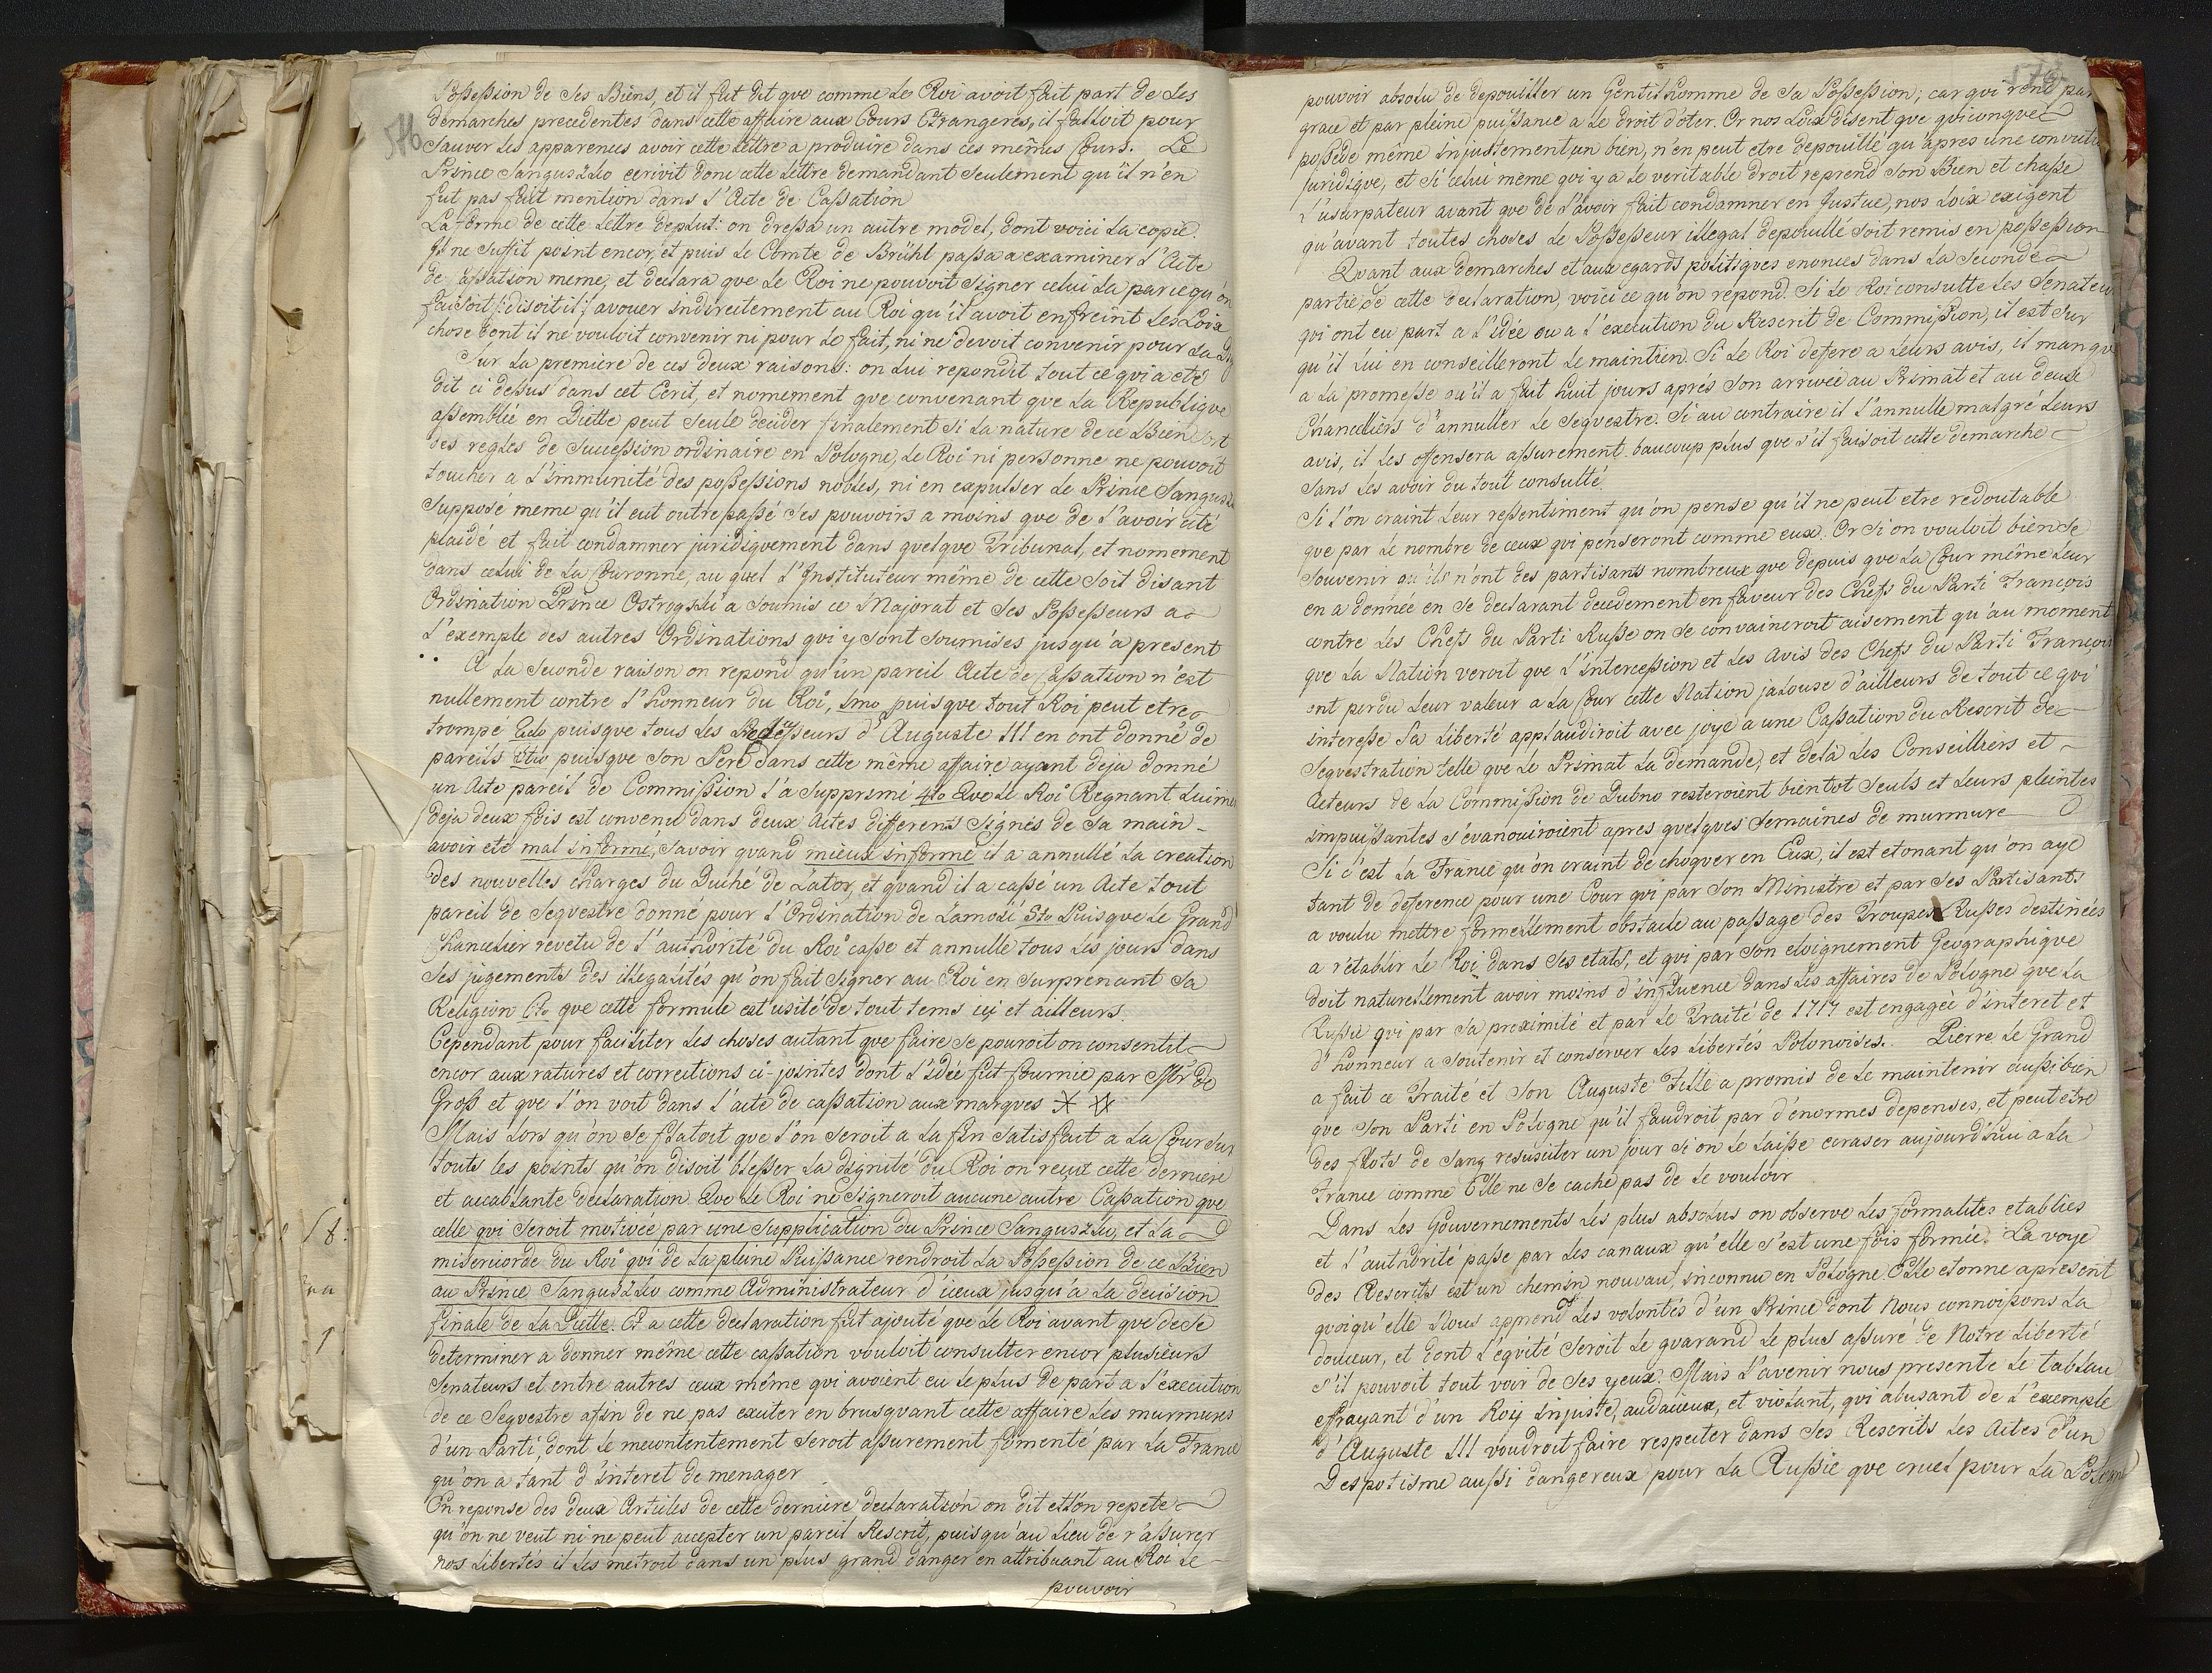 576
Possession de ses Biens, et il fut dit que comme le Roi avoit fait part de ses
demarches precedentes dans cette affaire aux Cours Etrangeres, il falloit pour
sauver les apparences avoir cette Lettre a produire dans ces mêmes Cours. Le
Prince Sanguszko ecrivit donc cette Lettre demandant seulement qu'il n'en
fut pas fait mention dans l'Acte de Cassation
La forme de cette Lettre deplut: on dressa un autre model, dont voici la copie.
Il ne suffit point encor, et puis le Comte de Brühl passa a examiner l'Acte
de Cassation meme, et declara que le Roi ne pouvoit signer celui la parcequ'on
faisoit /: disoit il :/ avouer indirectement au Roi qu'il avoit enfreint les Loix
chose dont il ne vouloit convenir ni pour le fait, ni ne devoit convenir pour sa
Sur la premiere de ces deux raisons: on lui repondit tout ce qui a eté
dit ci dessus dans cet Ecrit, et nomement que convenant que la Republique
assemblée en Diette peut seule decider finalement si la nature de ce Bien sort
des regles de Succession ordinaire en Pologne, le Roi ni personne ne pouvoit
toucher a l'immunité des possessions nobles, ni en expulser le Prince Sanguszko
supposé meme qu'il eut outrepassé ses pouvoirs a moins que de l'avoir cité
plaidé et fait condamner juridiquement dans quelque Tribunal, et nomement
dans celui de la Couronne, au quel l'Instituteur même de cette soit disant
Ordination Prince Ostrogski a soumis ce Majorat et ses Possesseurs a
l'exemple des autres Ordinations qui y sont soumises jusqu'a present
A la seconde raison on repond qu'un pareil Acte de Cassation n'est
nullement contre l'honneur du Roi, 1mo puisque tout Roi peut etre
trompé 2do puisque tous les Predecesseurs d'Auguste III en ont donné de
pareils 3tio puisque son Pere dans cette même affaire ayant deja donné
un Acte pareil de Commission l'a supprimé 4to Que le Roi Regnant luimeme
deja deux fois est convenu dans deux Actes differents signés de sa main
avoir eté mal informé, savoir quand mieux informé il a annullé la creation
des nouvelles charges du Duché de Zator, et quand il a cassé un Acte tout
pareil de Sequestre donné pour l'Ordination de Zamosć 5to Puisque le Grand
Chancelier revetu de l'authorité du Roi casse et annulle tous les jours dans
ses jugements des illegalités qu'on fait signer au Roi en surprenant sa
Religion 6to que cette formule est usité de tout tems ici et ailleurs.
Cependant pour faciliter les choses autant que faire se pouroit on consentit
encor aux ratures et corrections ci-jointes dont l'idée fut fournie par Mr de
Gross et que l'on voit dans l'acte de cassation aux marques
Mais lors qu'on se flatoit que l'on seroit a la fin satisfait a la Cour sur
touts les points qu'on disoit blesser la dignité du Roi on reçut cette derniere
et accablante declaration. Que le Roi ne signeroit aucune autre Cassation que
celle qui seroit motivée par une Supplication du Prince Sanguszko, et la
misericorde du Roi qui de sa pleine Puissance rendroit la Possession de ce Bien
au Prince Sanguszko comme Administrateur d'iceux jusqu'a la decision
finale de la Diette. Et a cette declaration fut ajouté que le Roi avant que de se
determiner a donner même cette cassation vouloit consulter encor plusieurs
Senateurs et entre autres ceux même qui avoient eu le plus de part a l'execution
de ce Sequestre afin de ne pas exciter en brusquant cette affaire les murmures
d'un Parti, dont le mecontentement seroit assurement fomenté par la France
qu'on a tant d'interet de menager
En reponse des deux Articles de cette derniere declaration on dit et l'on repete
qu'on ne veut ni ne peut accepter un pareil Rescrit, puisqu'au lieu de r'assurer
nos Libertés il les metroit dans un plus grand danger en attribuant au Roi le
pouvoir
pouvoir absolu de depouiller un Gentilhomme de sa Possession; car qui rend par
grace et par pleine puissance a le droit d'oter. Or nos Loix disent que quiconque
possede même injustement un bien, n'en peut etre depouillé qu'apres une
juridique, et si celui meme qui y a le veritable droit reprend son Bien et chasse
l'usurpateur avant que de l'avoir fait condamner en Justice, nos Loix exigent
qu'avant toutes choses le Possesseur illegal depouillé soit remis en possession
Quant aux demarches et aux egards politiques enoncés dans la seconde
partie de cette declaration, voici ce qu'on repond. Si le Roi consulte les Senateurs
qui ont eu part a l'idée ou a l'execution du Rescrit de Commission, il est sur
qu'il lui en conseilleront le maintien. Si le Roi defere a leurs avis, il manque
a la promesse qu'il a fait huit jours aprés son arrivée au Primat et au deux
Chancelliers d'annuller le Sequestre. Si au contraire il l'annulle malgré leurs
avis, il les offensera assurement baucoup plus que s'il faisoit cette demarche
sans les avoir du tout consulté.
Si l'on craint leur ressentiment qu'on pense qu'il ne peut etre redoutable
que par le nombre de ceux qui penseront comme eux. Or si on vouloit bien se
souvenir qu'ils n'ont des partisants nombreux que depuis que la Cour même leur
en a donnée en se declarant decedement en faveur des Chefs du Parti François
contre les Chefs du Parti Russe on se convaincroit aisement qu'au moment
que la Nation veroit que l'intercession et les avis des Chefs du Parti François
ont perdu leur valeur a la Cour cette Nation jalouse d'ailleurs de tout ce qui
interesse sa liberté applaudiroit avec joye a une Cassation du Rescrit de
Sequestration telle que le Primat la demande, et delà les Conseilliers et
Acteurs de la Commission de Dubno resteroient bientot seuls et leurs pleintes
impuissantes s'evanouiroient apres quelques semaines de murmure
Si c'est la France qu'on craint de choquer en Eux, il est etonant qu'on aye
tant de deference pour une Cour qui par son Ministre et par ses Partisants
a voulu mettre formellement obstacle au passage des Troupes Russes destinées
a r'etablir le Roi dans ses etats, et qui par son eloignement Geographique
doit naturellement avoir moins d'influence dans les affaires de Pologne que la
Russie qui par sa proximité et par le Traité de 1717 est engagée d'interet et
d'honneur a soutenir et conserver les Libertés Polonoises. Pierre le Grand
a fait ce Traité et son Auguste Fille a promis de le maintenir aussibien
que son Parti en Pologne qu'il faudroit par d'énormes depenses, et peut etre
des flots de sang resusciter un jour si on le laisse ecraser aujourd'hui a la
France comme Elle ne se cache pas de le vouloir
Dans les Gouvernements les plus absolus on observe les formalites etablies
et l'authorité passe par les canaux qu'elle s'est une fois formée. La voye
des Rescrits est un chemin nouvau, inconnu en Pologne. Elle etonne apresent
quoiqu'elle Nous apprend les volontés d'un Prince dont Nous connoissons la
douceur, et dont l'équité seroit le guarand le plus assuré de Notre Liberté
s'il pouvoit tout voir de ses yeux. Mais l'avenir nous presente le tablau
effrayant d'un Roy injuste, audacieux, et violant, qui abusant de l'exemple
d'Auguste III voudroit faire respecter dans ses Rescrits les Actes d'un
Despotisme aussi dangereux pour la Russie que cruel pour la Pologne